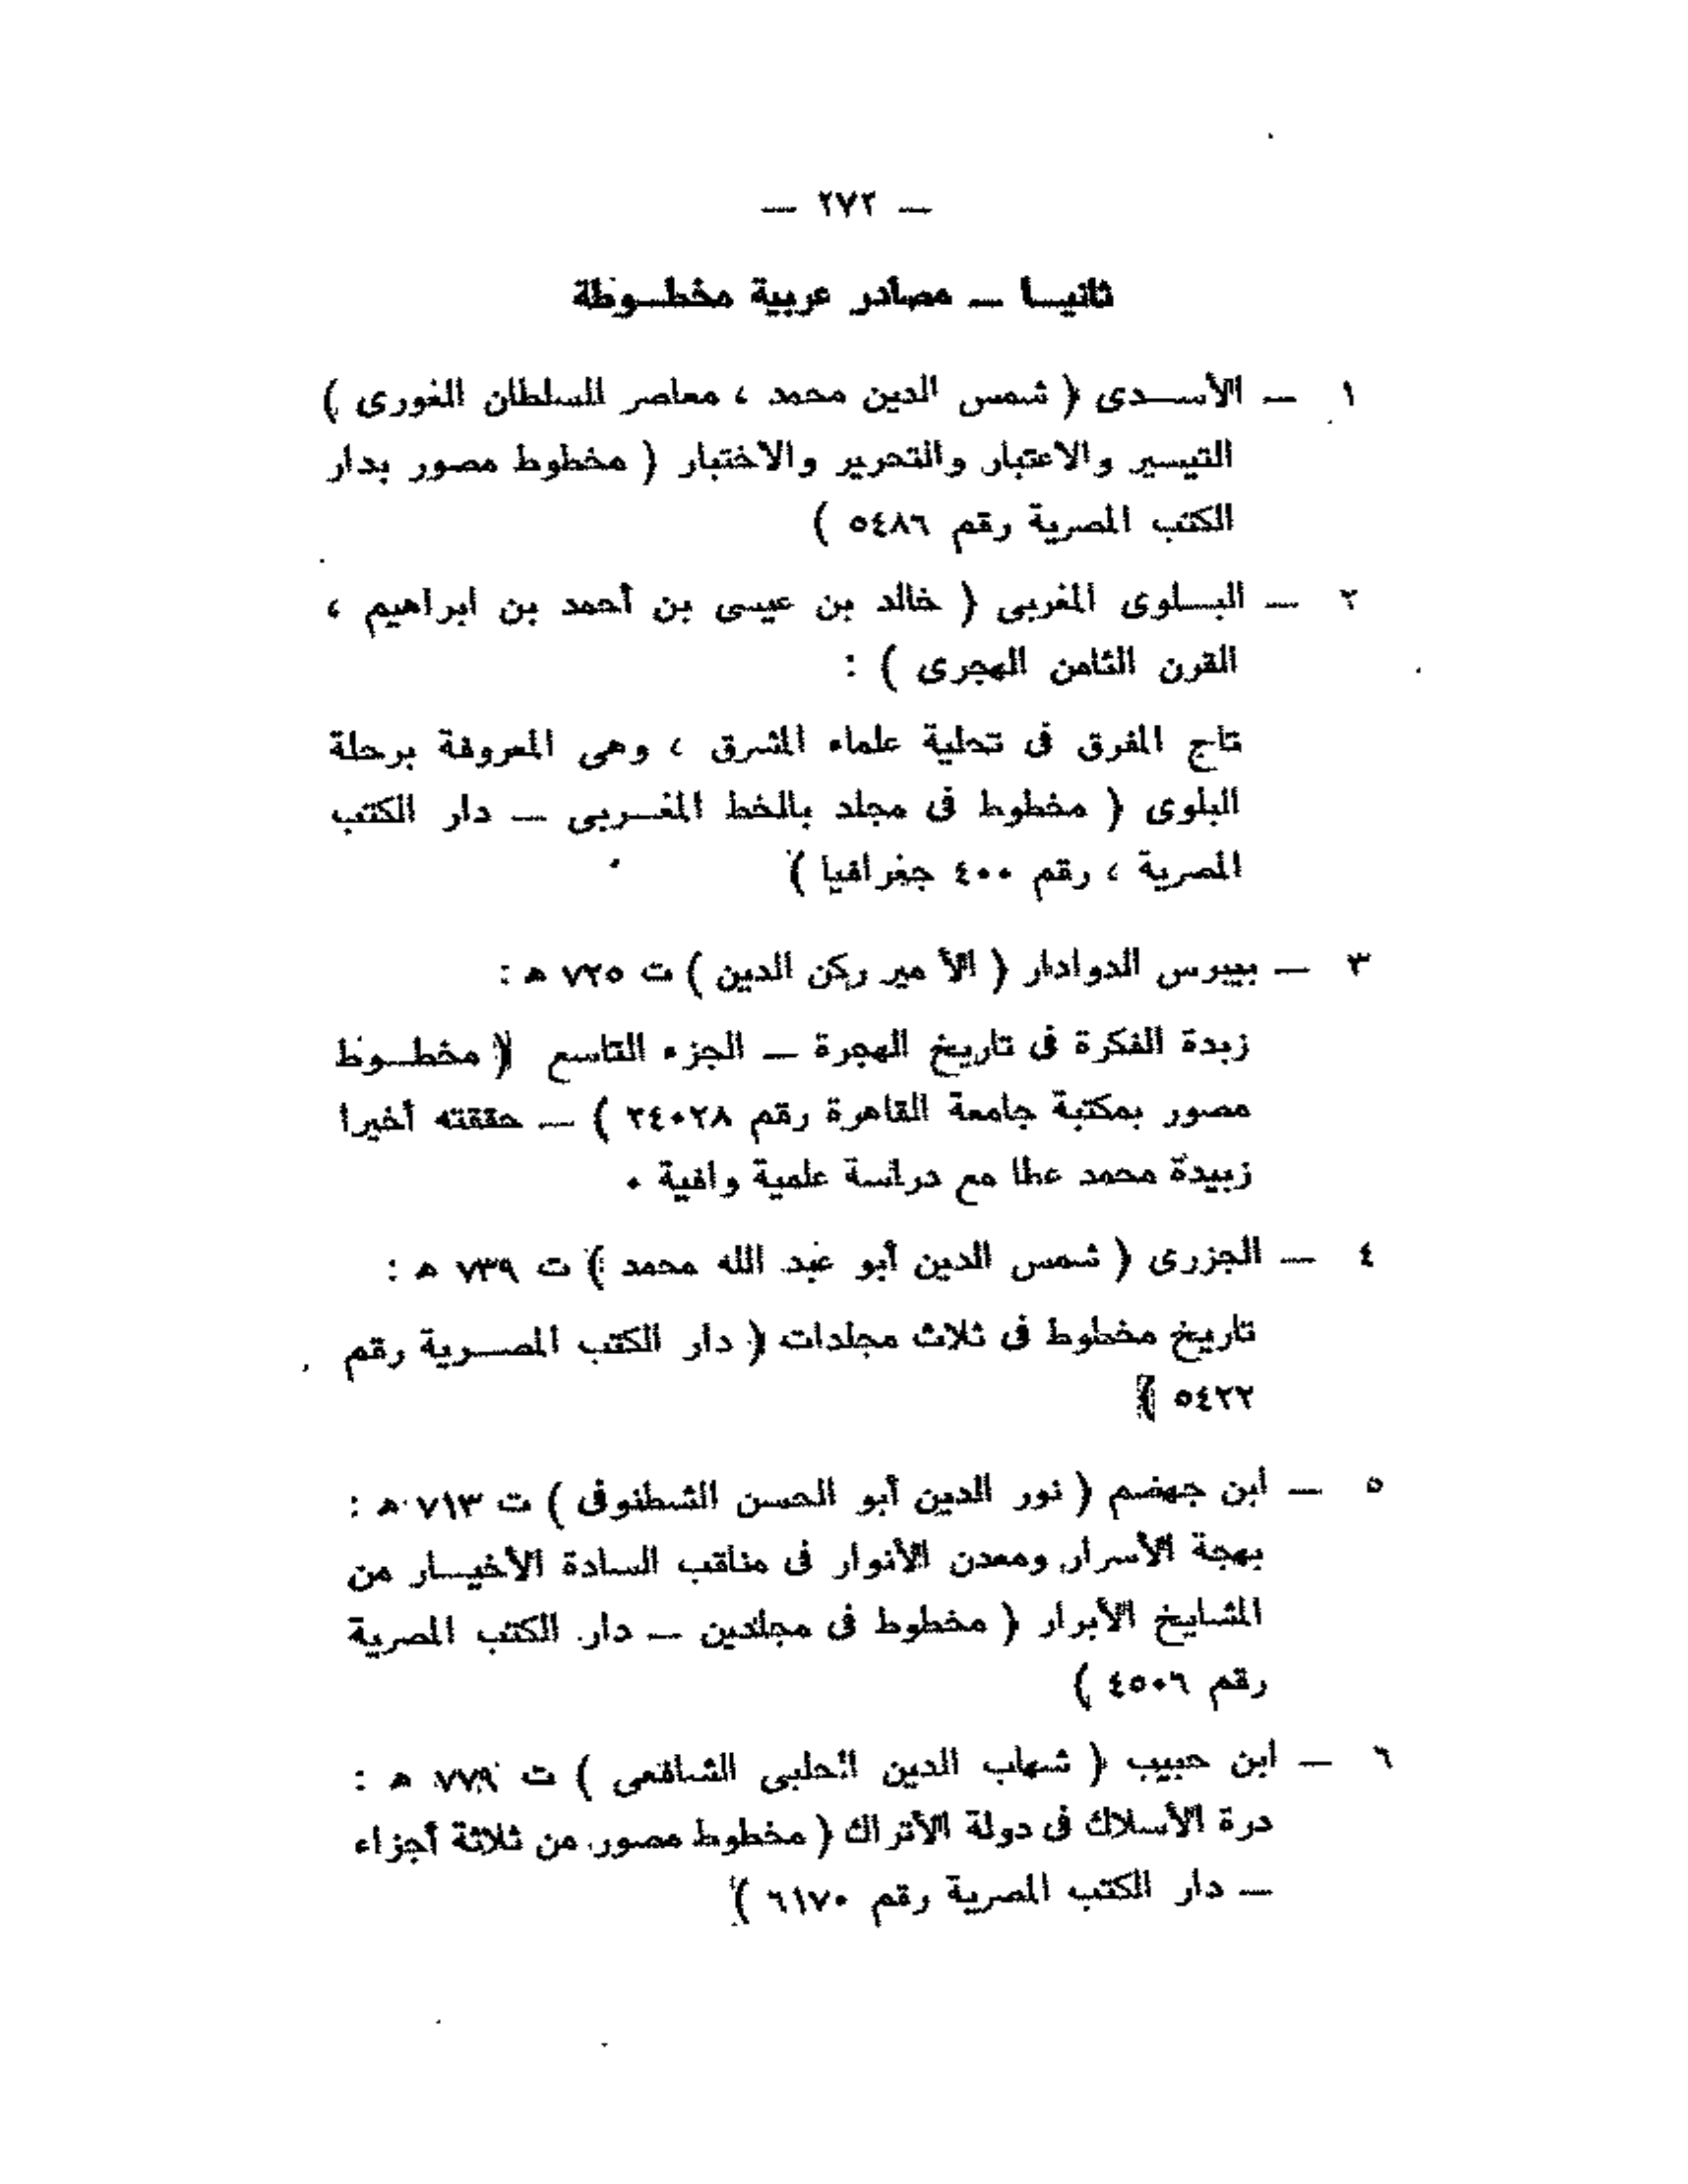 — ٢٧٢ —
ثانيا — مصادر عربية مخطوطة
١ — الأسدى ( شمس الدين محمد ، معاصر للسلطان الغورى )
التيسير والاعتبار والتحرير والاختبار ( مخطوط مصور بدار
الكتب المصرية رقم ٥٤٨٦ )
٢ — البلوى المغربى ( خالد بن عيسى بن أحمد بن ابراهيم ،
القرن الثامن الهجرى ) :
تاج المفرق فى تحلية علماء المشرق ، وهى المعروفة برحلة
البلوى ( مخطوط فى مجلد بالخط المغربى — دار الكتب
المصرية ، رقم ٤٠٠ جغرافيا )
٣ — بيبرس الدوادار ( الأمير ركن الدين ) ت ٧٢٥ ه :
زبدة الفكرة فى تاريخ الهجرة — الجزء التاسع ( مخطوط
مصور بمكتبة جامعة القاهرة رقم ٢٤٠٢٨ ) — حققته أخيرا
زبيدة محمد عطا مع دراسة علمية وافية .
٤ — الجزرى ( شمس الدين أبو عبد الله محمد ) ت ٧٣٩ ه :
تاريخ مخطوط فى ثلاث مجلدات ( دار الكتب المصرية رقم
٥٤٢٢ )
٥ — ابن جهضم ( نور الدين أبو الحسن الشطنوفى ) ت ٧١٣ ه :
بهجة الأسرار ومعدن الأنوار فى مناقب السادة الأخيار من
المشايخ الأبرار ( مخطوط فى مجلدين — دار الكتب المصرية
رقم ٤٥٠٦ )
٦ — ابن حبيب ( شهاب الدين الحلبى الشافعى ) ت ٧٧٩ ه :
درة الأسلاك فى دولة الأتراك ( مخطوط مصور من ثلاثة أجزاء
— دار الكتب المصرية رقم ٦١٧٠ )